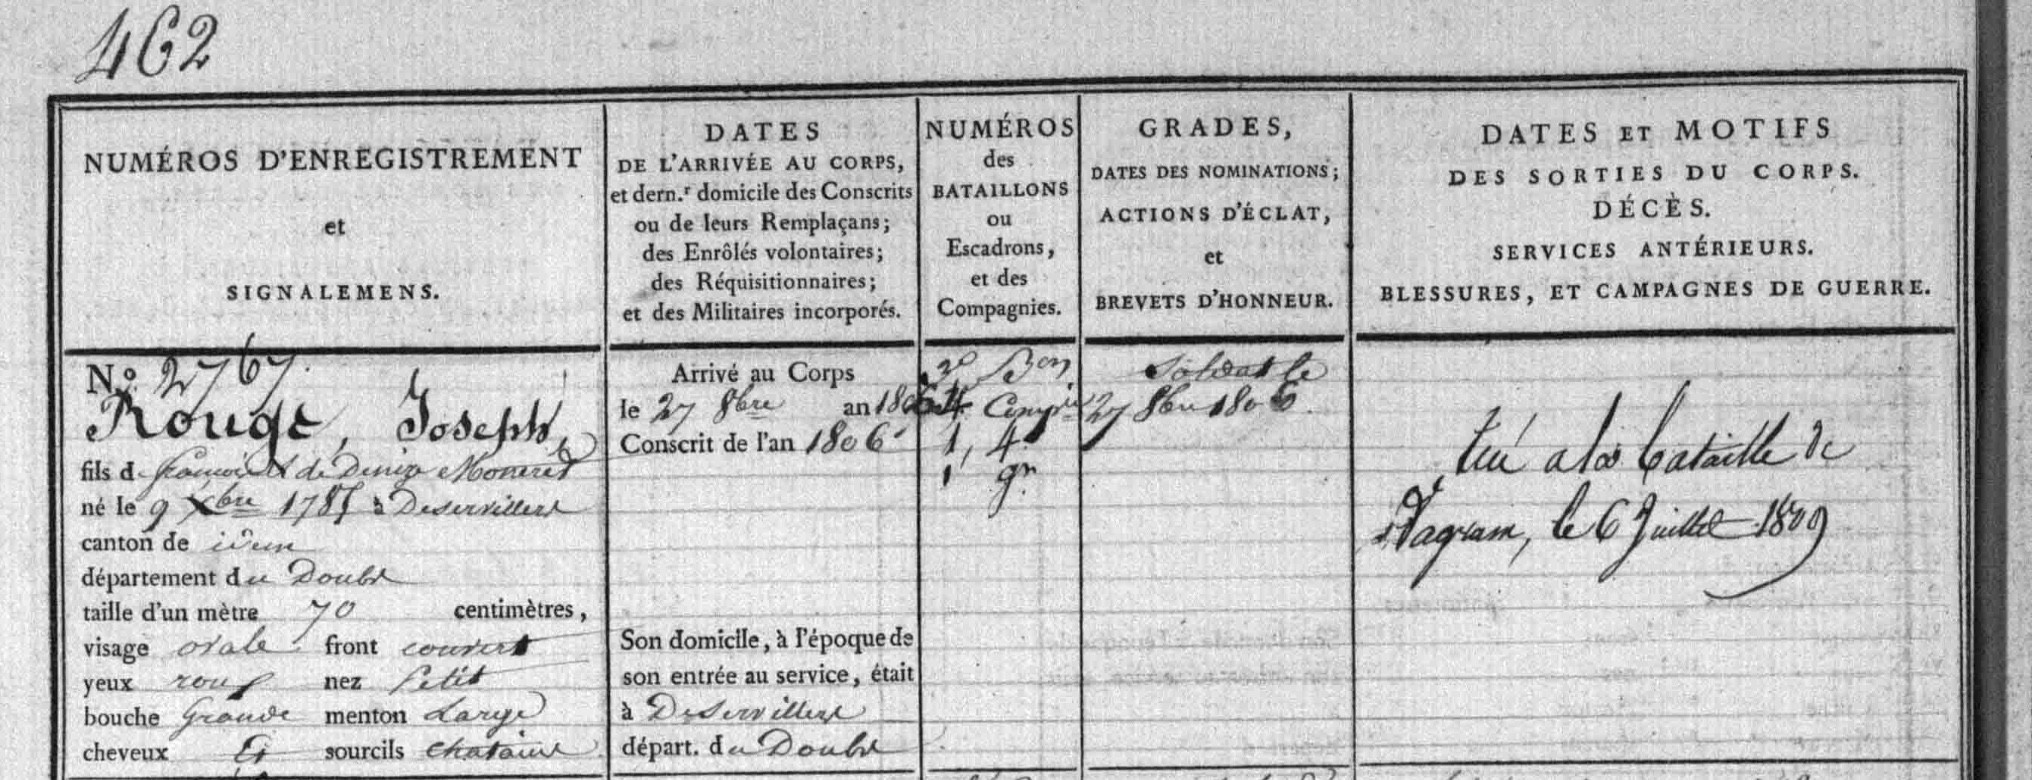 462
NUMÉROS D'ENREGISTREMENT
et
SIGNALEMENS.
DATES
DE L'ARRIVÉE AU CORPS,
et dern.r domicile des Conscrits
ou de leurs Remplaçans;
des Enrôlés volontaires;
des Réquisitionnaires;
et des Militaires incorporés.
NUMÉROS
des
BATAILLONS
ou
Escadrons,
et des
Compagnies.
GRADES,
DATES DES NOMINATIONS;
ACTIONS D'ÉCLAT,
et
BREVETS D'HONNEUR.
DATES ET MOTIFS
DES SORTIES DU CORPS.
DÉCÈS.
SERVICES ANTÉRIEURS.
BLESSURES, ET CAMPAGNES DE GUERRE.
No. 2767.
Rouge, Joseph,
fils de François et de Denize Monnered
né le 9 Xbre 1785 à Deservillers
canton de idem
département du Doubs
taille d'un mètre 70 centimètres,
visage ovale front couvert
yeux roux nez Petit
bouche Grande menton Large
cheveux Et sourcils chatains
Arrivé au Corps
le 27 8bre an 1806
Conscrit de l'an 1806
Son domicile, à l'époque de
son entrée au service, était
à Deservillers
départ. du Doubs
3e Bon
4 Compie
1, 4
1 gr
Soldat le
27 8bre 1806.
tué a la bataille de
Wagram, le 6 Juillet 1809